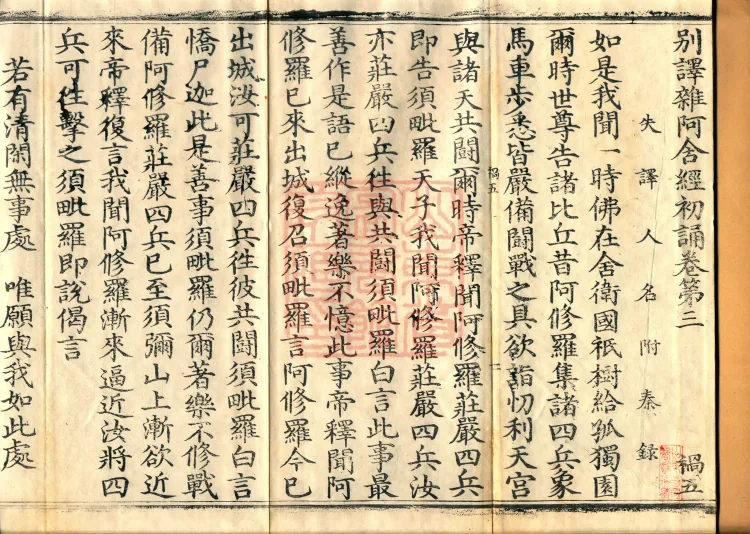 別譯雜阿含經初誦卷第三
禍五
失譯人名附秦録
如是我聞一時佛在舍衛國祇樹給孤獨園
爾時世尊告諸比丘昔阿修羅集諸四兵象
馬車歩悉皆嚴備鬪戰之具欲詣忉利天宮
與諸天共鬪爾時帝釋聞阿修羅莊嚴四兵
即告須毗羅天子我聞阿修羅莊嚴四兵汝
亦莊嚴四兵徃與共鬪須毗羅白言此事最
善作是語已縱逸著樂不憶此事帝釋聞阿
修羅已來出城復召須毗羅言阿修羅今已
出城汝可莊嚴四兵徃彼共鬪須毗羅白言
憍尸迦此是善事須毗羅仍爾著樂不修戰
備阿修羅莊嚴四兵已至須彌山上漸欲近
來帝釋復言我聞阿修羅漸來逼近汝將四
兵可徃擊之須毗羅即說偈言
若有清閑無事處 唯願與我如此處
禍五
一